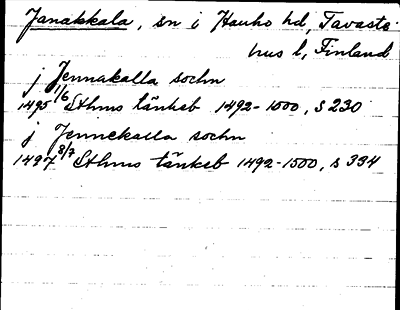 Janakkala, sn i Hauho hd, Tavaste-
hus l, Finland
j Jennakalla sochn
1495 1/6 Sthms tänkeb 1492-1500, s 230
j Jennekalla sochn
1497 8/7 Sthms tänkeb 1492-1500, s 394